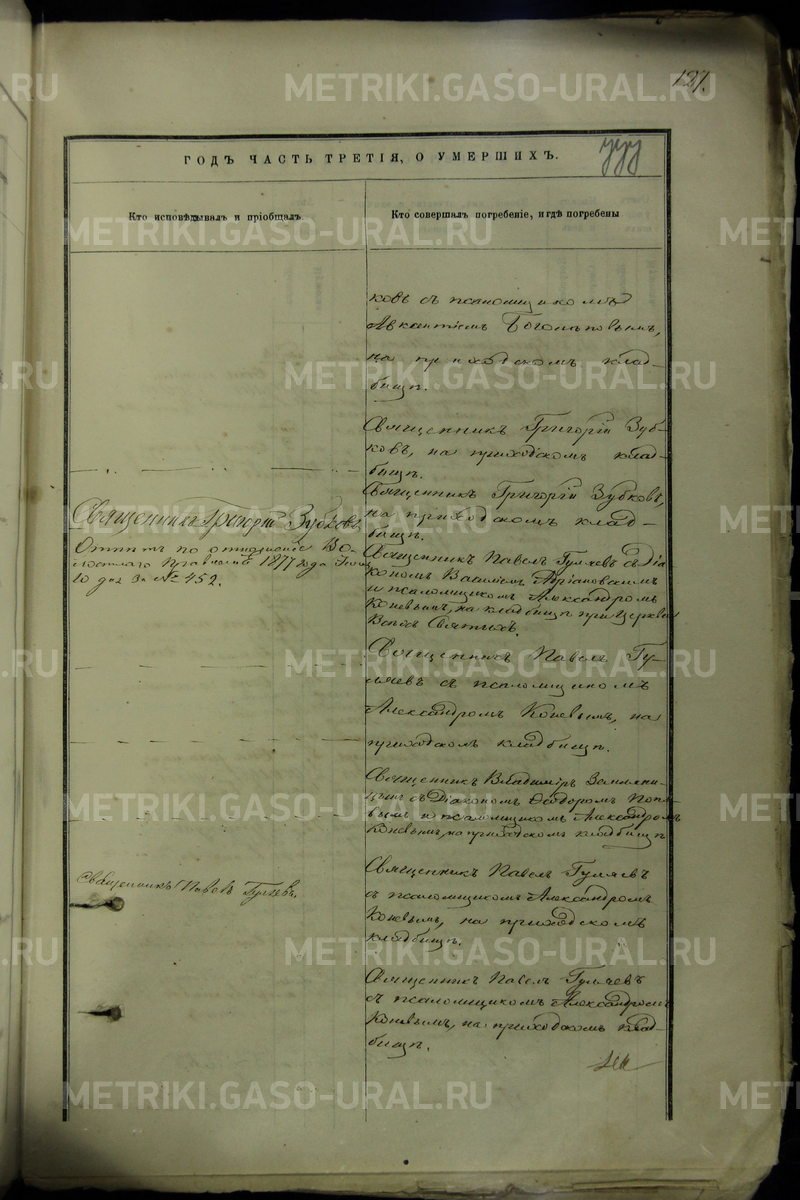 127.
ГОДЪ ЧАСТЬ ТРЕТІЯ, О УМЕРШИХЪ.
Кто исповѣдывалъ и пріобщалъ
Кто совершалъ погребеніе, и гдѣ погребены
ковъ съ псаломщикомъ
на приходскомъ клад-
бищѣ.
Священникъ Григорій Зуб-
ковъ, на приходскомъ клад-
бищѣ.
Священникъ Григорій Зубковъ,
на приходскомъ клад-
бищѣ.
Священникъ Григорій Зубковъ.
Отпѣтъ по отношенію Во-
лостнаго Правленія 1877 года
10 дня за № 452.
Священникъ Павелъ Гуляевъ съ Діа-
кономъ Василіемъ Адріановскимъ
и псаломщикомъ Александромъ
Коневымъ, на кладбищѣ при Церкви
Всѣхъ Святыхъ.
Священникъ Павелъ Гу-
ляевъ съ псаломщикомъ
Александромъ Коневымъ, на
приходскомъ кладбищѣ.
Священникъ Владиміръ Земляни-
цынъ съ Діакономъ Ѳеодоромъ Попо-
вымъ и псаломщикомъ Александромъ
Коневымъ, на приходскомъ кладбищѣ
Священникъ Павелъ Гуляевъ.
Священникъ Павелъ Гуляевъ
съ псаломщикомъ Александромъ
Коневымъ, на приходскомъ
кладбищѣ.
Священникъ Павелъ Гуляевъ
съ псаломщикомъ Александромъ
Коневымъ, на приходскомъ клад-
бищѣ.
METRIKI.GASO-URAL.RU